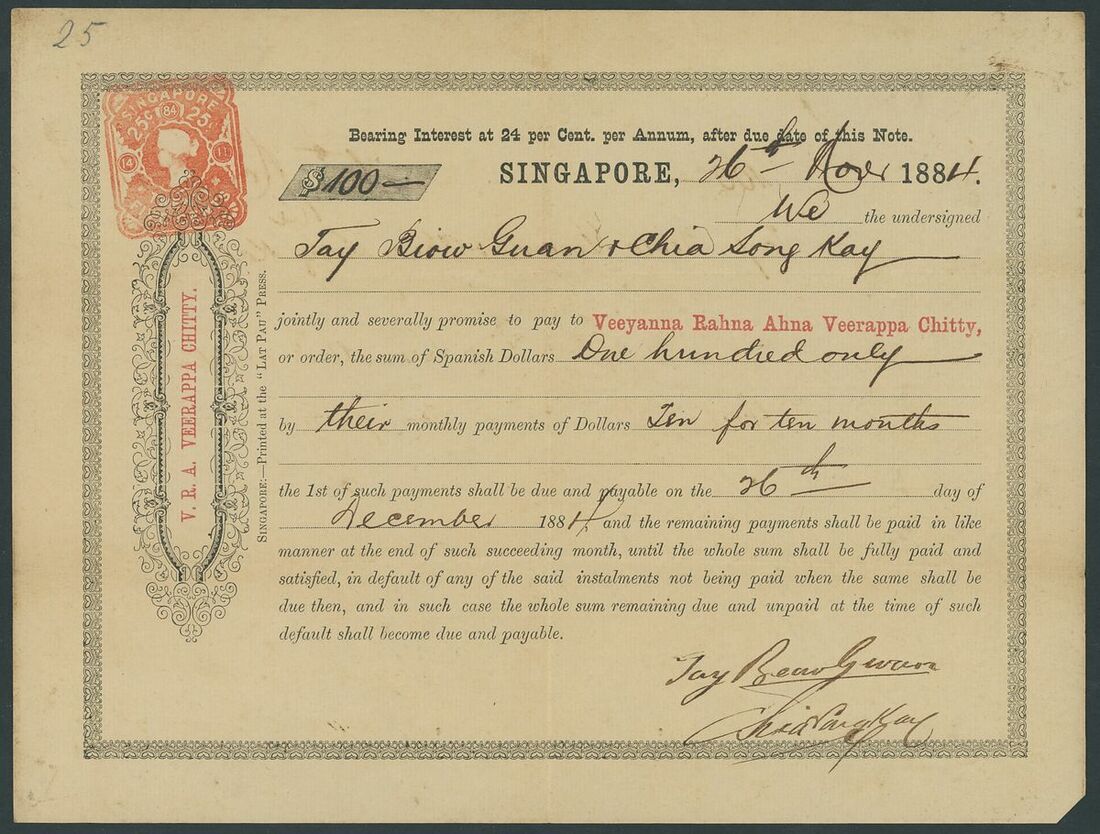 25
SINGAPORE
25 C 84 25
14 11
Bearing Interest at 24 per Cent. per Annum, after due date of this Note.
$100
SINGAPORE, 26th Novr 1884.
We the undersigned
Tay Biow Guan & Chia Song Kay
jointly and severally promise to pay to Veeyanna Rahna Ahna Veerappa Chitty,
or order, the sum of Spanish Dollars One hundred only
by their monthly payments of Dollars Ten for ten months
the 1st of such payments shall be due and payable on the 26th day of
December 1884, and the remaining payments shall be paid in like
manner at the end of such succeeding month, until the whole sum shall be fully paid and
satisfied, in default of any of the said instalments not being paid when the same shall be
due then, and in such case the whole sum remaining due and unpaid at the time of such
default shall become due and payable.
Tay Beow Gwan
Chia Song Kay
V. R. A. VEERAPPA CHITTY.
SINGAPORE:—Printed at the "LAT PAU" PRESS.